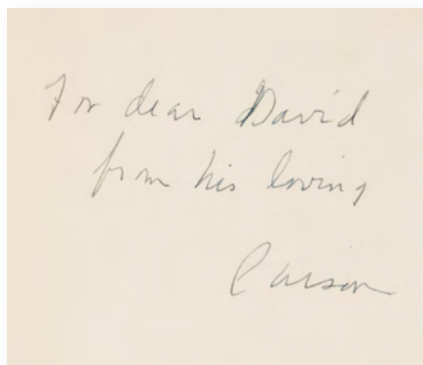 For dear David
from his loving
Carson